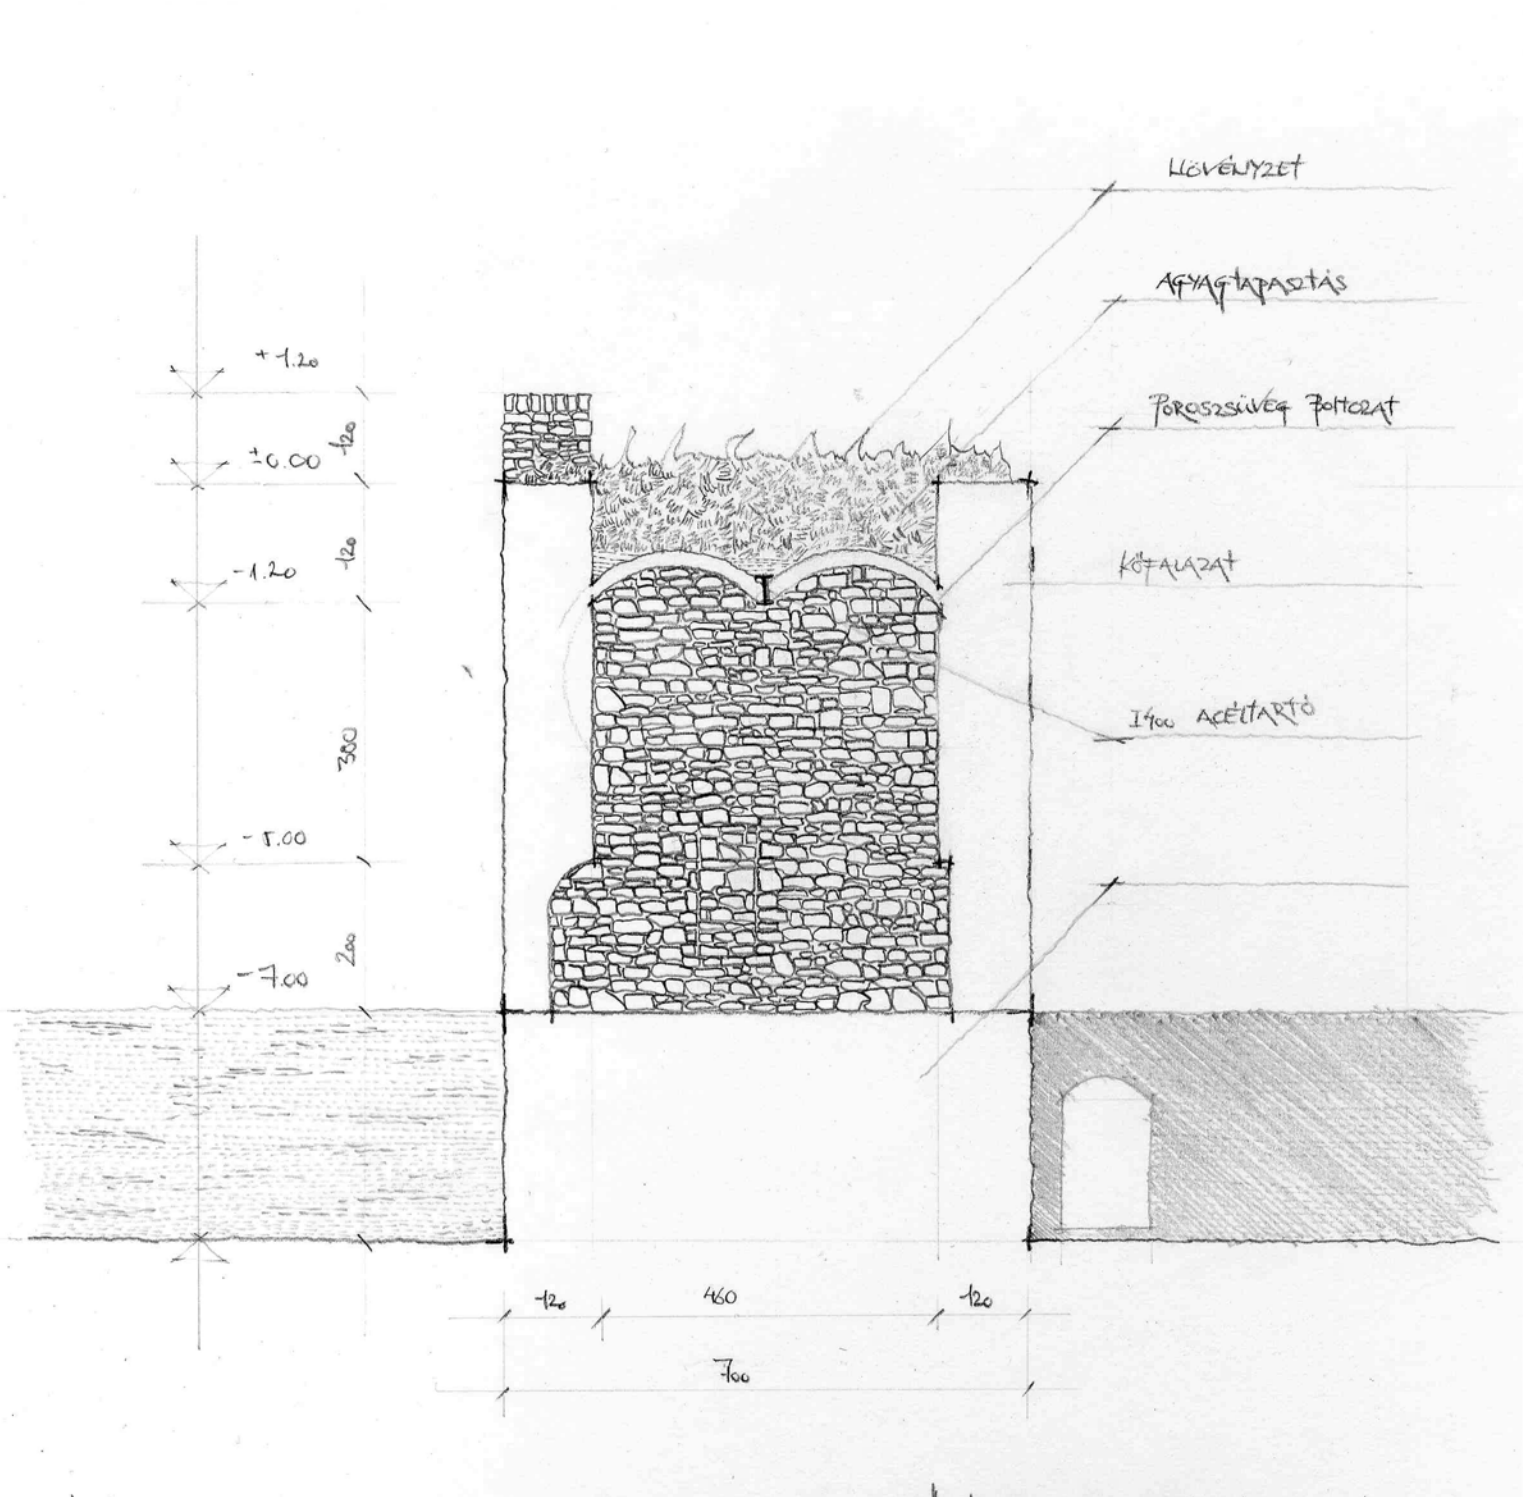 NÖVÉNYZET
AGYAGTAPASZTÁS
POROSZSÜVEG BOLTOZAT
KŐFALAZAT
I400 ACÉLTARTÓ
+1.20
±0.00
-1.20
-5.00
-7.00
120
120
380
200
120
460
120
700